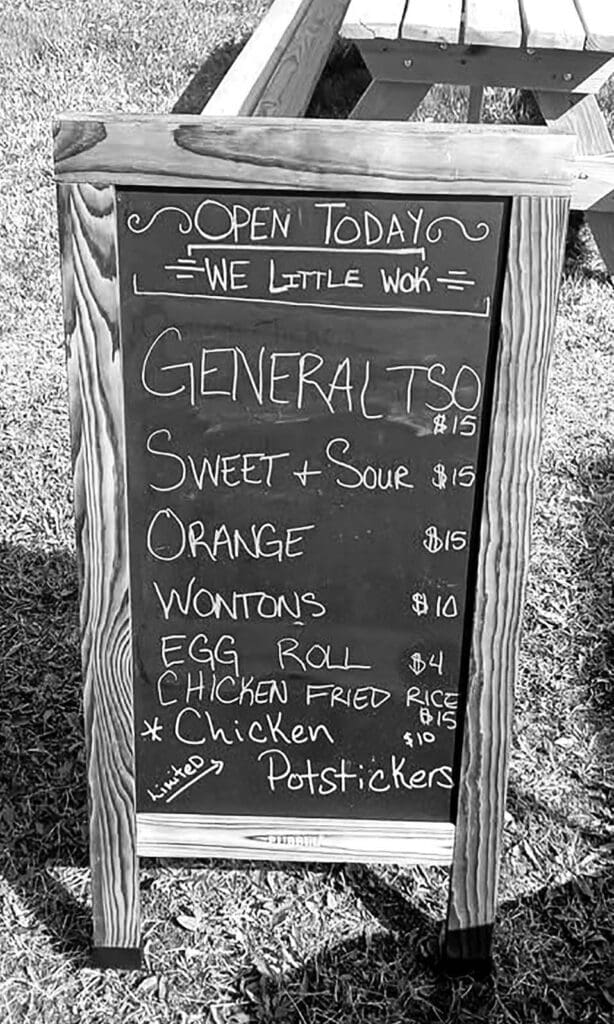 OPEN TODAY
WE LITTLE WOK
GENERAL TSO
$15
SWEET + SOUR $15
ORANGE $15
WONTONS $10
EGG ROLL $4
CHICKEN FRIED RICE
$15
* Chicken $10
LIMITED → Potstickers